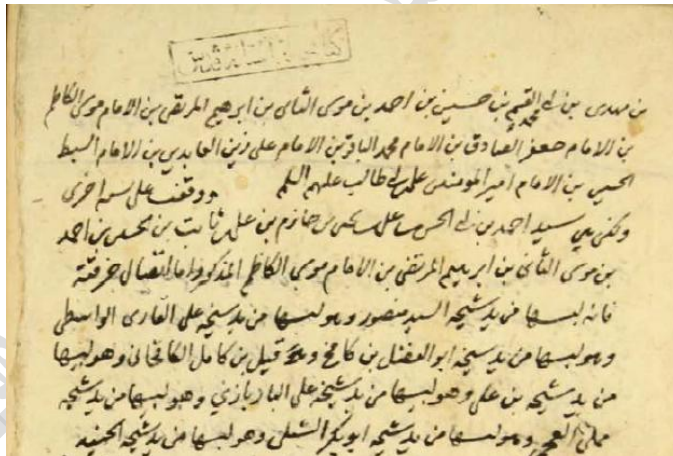 بن مهدى بن ابى القسم محمد بن حسين بن احمد بن موسى الثانى بن ابرهيم المرتضى بن الامام موسى الكاظم
بن الامام جعفر الصادق بن الامام محمد الباقر بن الامام على زين العابدين بن الامام السبط
الحسين بن الامام امير المومنين على بن ابى طالب عليهم السلم ووقفت على اخرى
وهى سيد احمد بن ابى الحسن على بن يحيى بن حازم بن على بن ثابت بن الحسن بن احمد
بن موسى الثانى بن ابرهيم المرتضى بن الامام موسى الكاظم المذكور واما اتصال خرقته
فانه لبسها من يد شيخه السيد منصور وهو لبسها من يد شيخه على القارى الواسطى
وهو لبسها من يد شيخه ابو الفضل بن كامخ وهو قبيل بن كامل وهو لبسها
من يد شيخه بن على وهو لبسها من يد شيخه على البازيازي وهو لبسها من يد شيخه
على العجمى وهو لبسها من يد شيخه ابو بكر الشبلى وهو لبسها من يد شيخه الجنيد